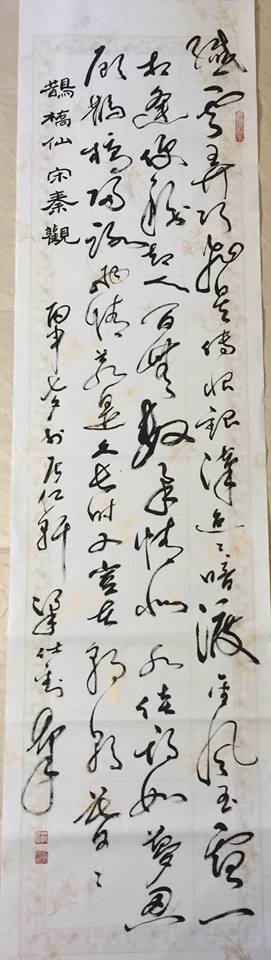 纖雲弄巧飛星傳恨銀漢迢〻暗渡金風玉露一
相逢便勝却人間無數柔情似水佳期如夢忍
顧鵲橋歸路兩情若是久長時又豈在朝〻暮〻
鵲橋仙 宋秦觀
丙申七夕於居仁軒 梁仕